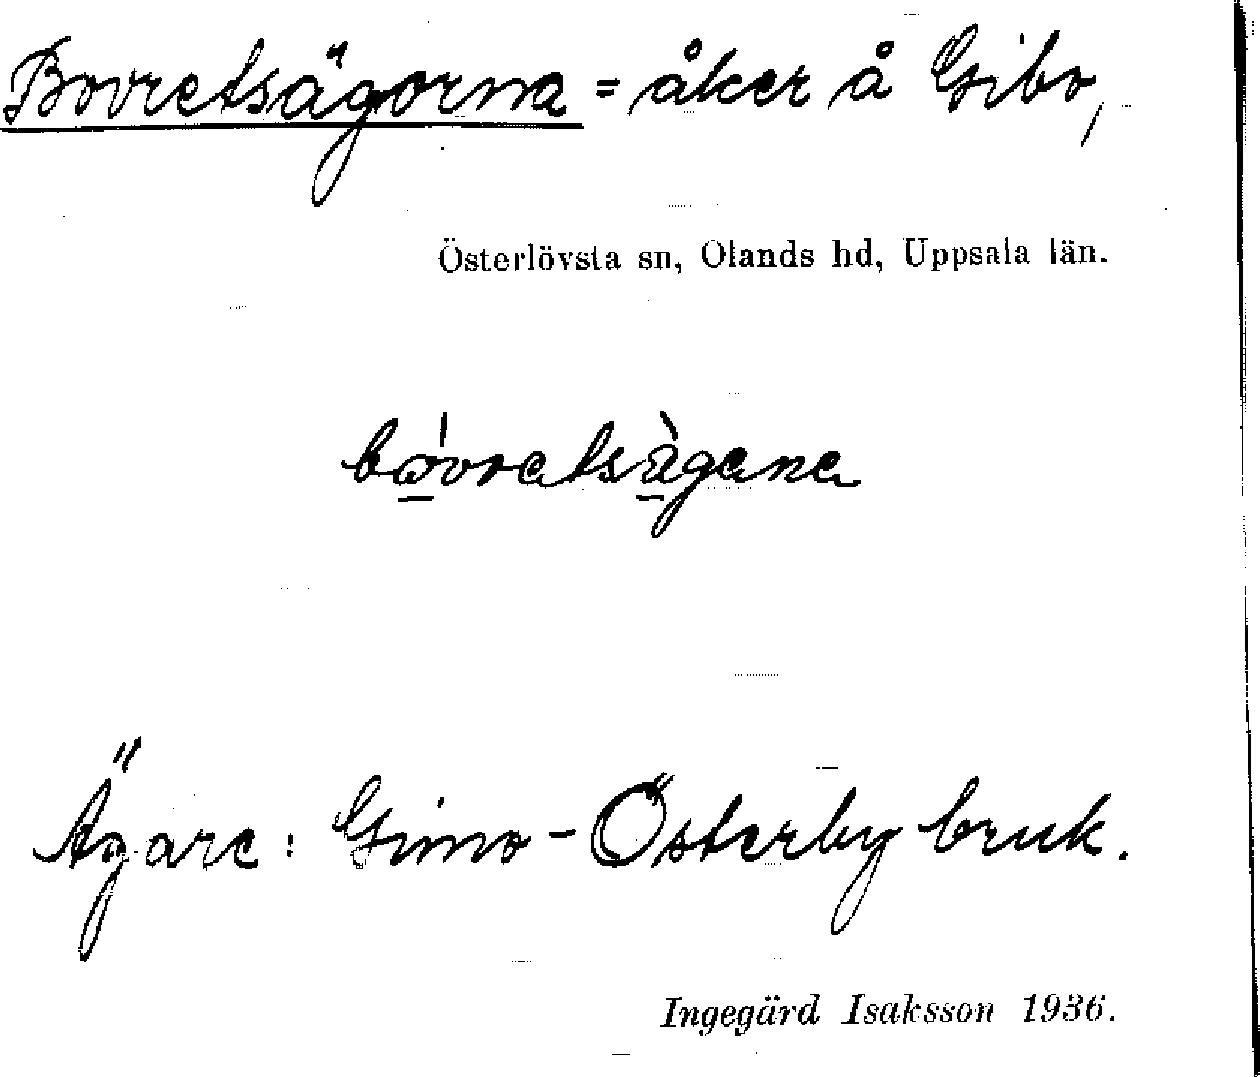 Bovretsägorna = åker å Gibo,
Österlövsta sn, Olands hd, Uppsala län.
bǿvretsàgena
Ägare: Gimo-Österby bruk.
Ingegärd Isaksson 1936.